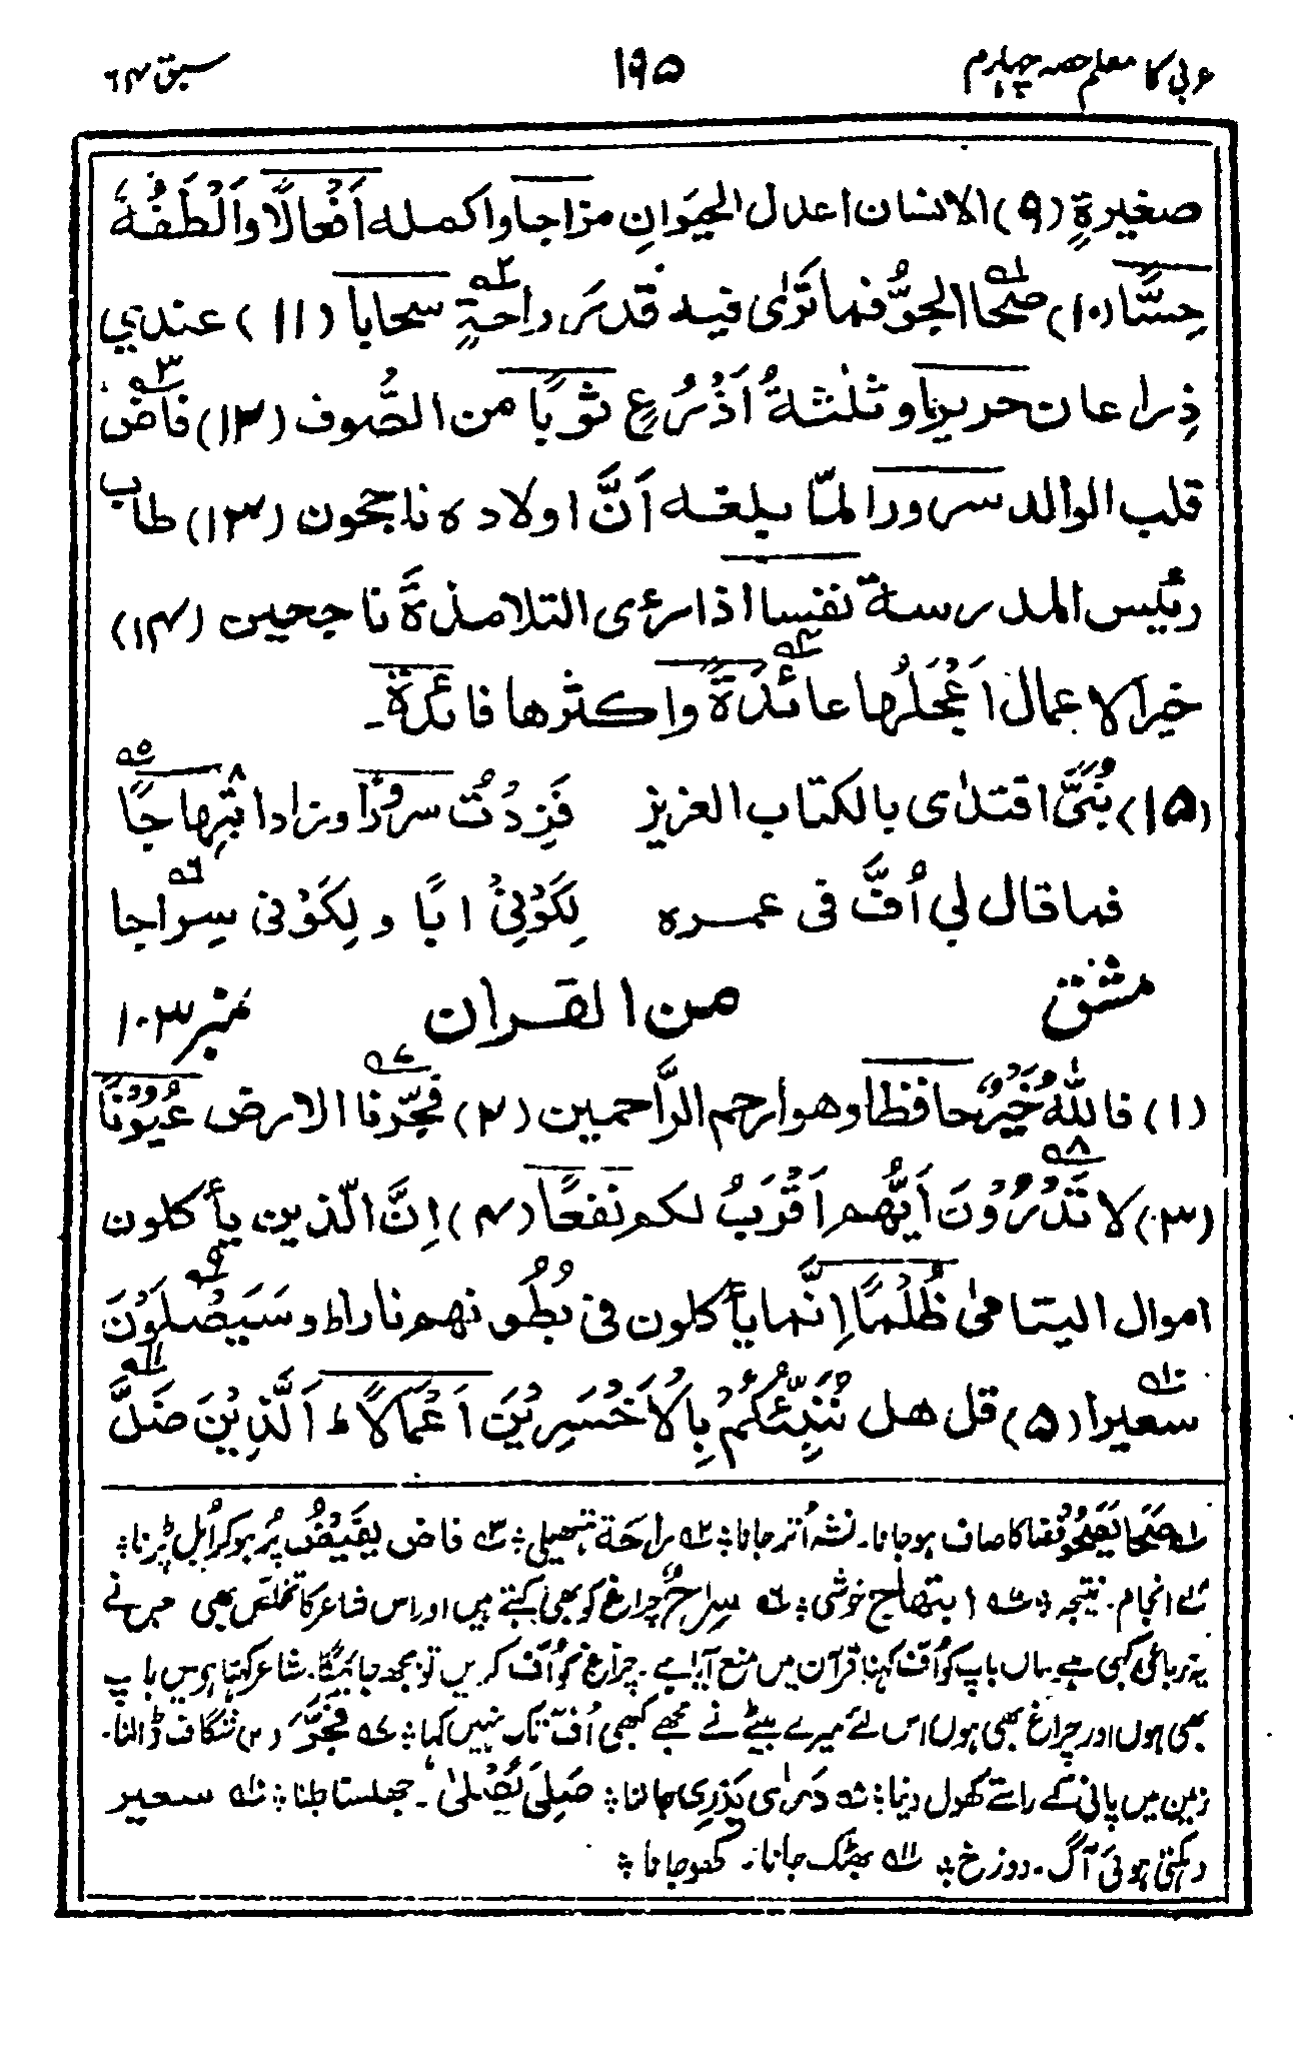 عربی کا معلم حصہ چہارم ۱۹۵ سبق ۶۴
صغيرةٍ (۹) الانسان اعدل الحيَوانِ مزاجا واكمله اَفْعالًا واَلْطَفُهٗ
حِسًّا (۱۰) صحا۱؎ الجوُّ فما تَرٰى فيه قدرَ راحةٍ۲؎ سحابا (۱۱) عندي
ذِراعان حريرًا وثلٰثةُ اَذْرُعٍ ثوبًا من الصُّوف (۱۲) فاضَ۳؎
قلب الوالد سرورا لمّا بلغه اَنَّ اولاده ناجحون (۱۳) طاب
رئيس المدرسة نفسا اذا رءى التلامذةَ ناجحين (۱۴)
خير الاعمال اَعْجَلُها عائدةً۴؎ واكثرها فائدة۔
(۱۵) بُنَيَّ اقتدٰى بالكتاب العزيز فَزِدْتُ سرورًا وزاد ابتِهاجًا۵؎
فما قال لي اُفَّ فى عمره لِكَوْنِيْ ابًا ولِكَوْنى سِراجا۶؎
مشق من القران نمبر ۱۰۳
(۱) فاللّٰهُ خَيْرٌ حافظا وهو ارحم الرَّاحمين (۲) فجّرنا۷؎ الارض عُيُوْنًا
(۳) لا تَدْرُوْنَ۸؎ اَيُّهم اَقْرَبُ لكم نَفعًا (۴) اِنَّ الّذين يأكلون
اموال اليتامٰى ظُلْمًا اِنَّما يأكلون فى بُطُونهم نارا ط وسَيَصْلَوْنَ۹؎
سعيرا۱۰؎ (۵) قل هل نُنَبِّئُكُمْ بِالْاَخْسَرِيْنَ اَعْمَالًا ط اَلَّذِيْنَ ضَلَّ۱۱؎
۱؎ صَحَا يَصْحُوْ فضا کا صاف ہو جانا۔ نشہ اُتر جانا ؛ ۲؎ راحة ہتھیلی ؛ ۳؎ فاض يفيضُ پُر ہو کر اُبل پڑنا ؛
۴؎ انجام۔ نتیجہ ؛ ۵؎ ابتهاج خوشی ؛ ۶؎ سِراجٌ چراغ کو بھی کہتے ہیں اور اس شاعر کا تخلص بھی جس نے
یہ رباعی کہی ہے۔ ماں باپ کو اُفّ کہنا قرآن میں منع آیا ہے۔ چراغ کو اُفّ کریں تو بجھ جائیگا۔ شاعر کہتا ہو میں باپ
بھی ہوں اور چراغ بھی ہوں اس لئے میرے بیٹے نے مجھے کبھی اُفّ تک نہیں کہا ؛ ۷؎ فَجَّرَ (۲) شگاف ڈالنا۔
زمین میں پانی کے راستے کھول دینا ؛ ۸؎ دَرٰى يَدْرِى جاننا ؛ صَلِىَ يَصْلٰى۔ جھلسنا جلنا ؛ ۱۰؎ سعير
دہکتی ہوئی آگ۔ دوزخ ؛ ۱۱؎ بھٹک جانا۔ کھو جانا ؛